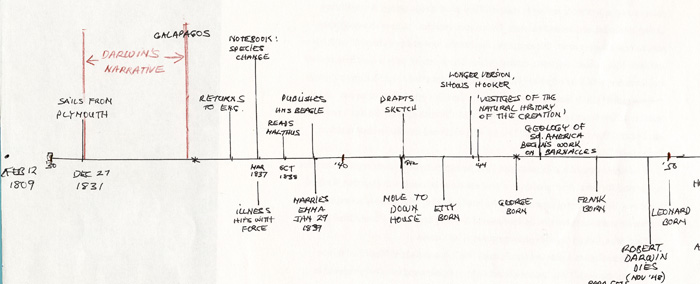 GALAPAGOS
DARWIN'S
NARRATIVE
SAILS FROM
PLYMOUTH
NOTEBOOK:
SPECIES
CHANGE
RETURNS
TO ENG.
PUBLISHES
HMS BEAGLE
READS
MALTHUS
DRAFTS
SKETCH
LONGER VERSION,
SHOWS HOOKER
'VESTIGES OF THE
NATURAL HISTORY
OF THE CREATION'
GEOLOGY OF
SO. AMERICA
BEGINS WORK
ON BARNACLES
FEB 12
1809
'30
DEC 27
1831
MAR
1837
OCT
1838
'40
1842
'44
'50
ILLNESS
HITS WITH
FORCE
MARRIES
EMMA
JAN 29
1839
MOVE TO
DOWN
HOUSE
ETTY
BORN
GEORGE
BORN
FRANK
BORN
ROBERT
DARWIN
DIES
(NOV '48)
LEONARD
BORN